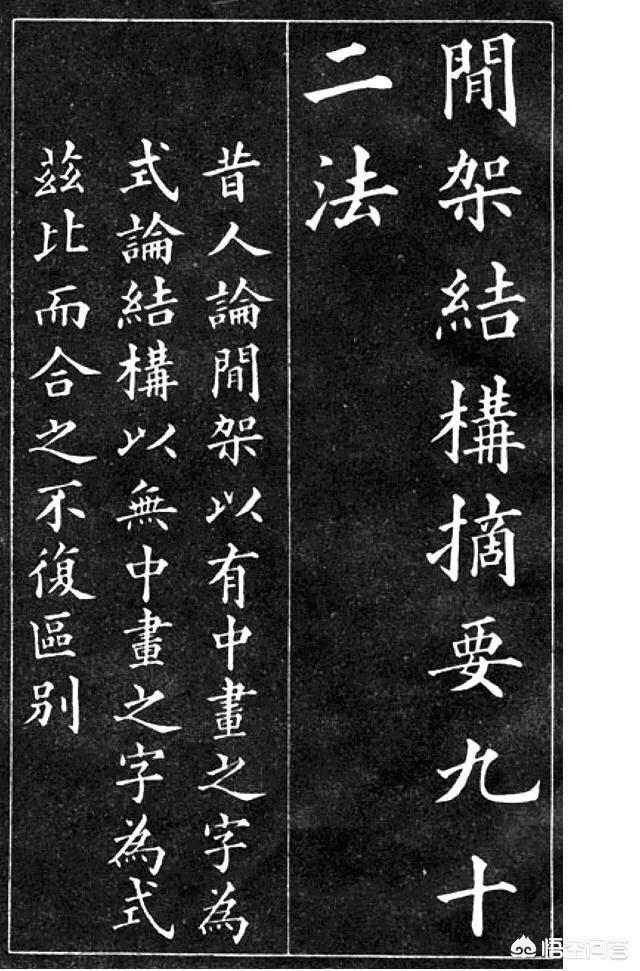 閒架結構摘要九十
二法
昔人論閒架以有中畫之字為
式論結構以無中畫之字為式
茲比而合之不復區別
悟空问答